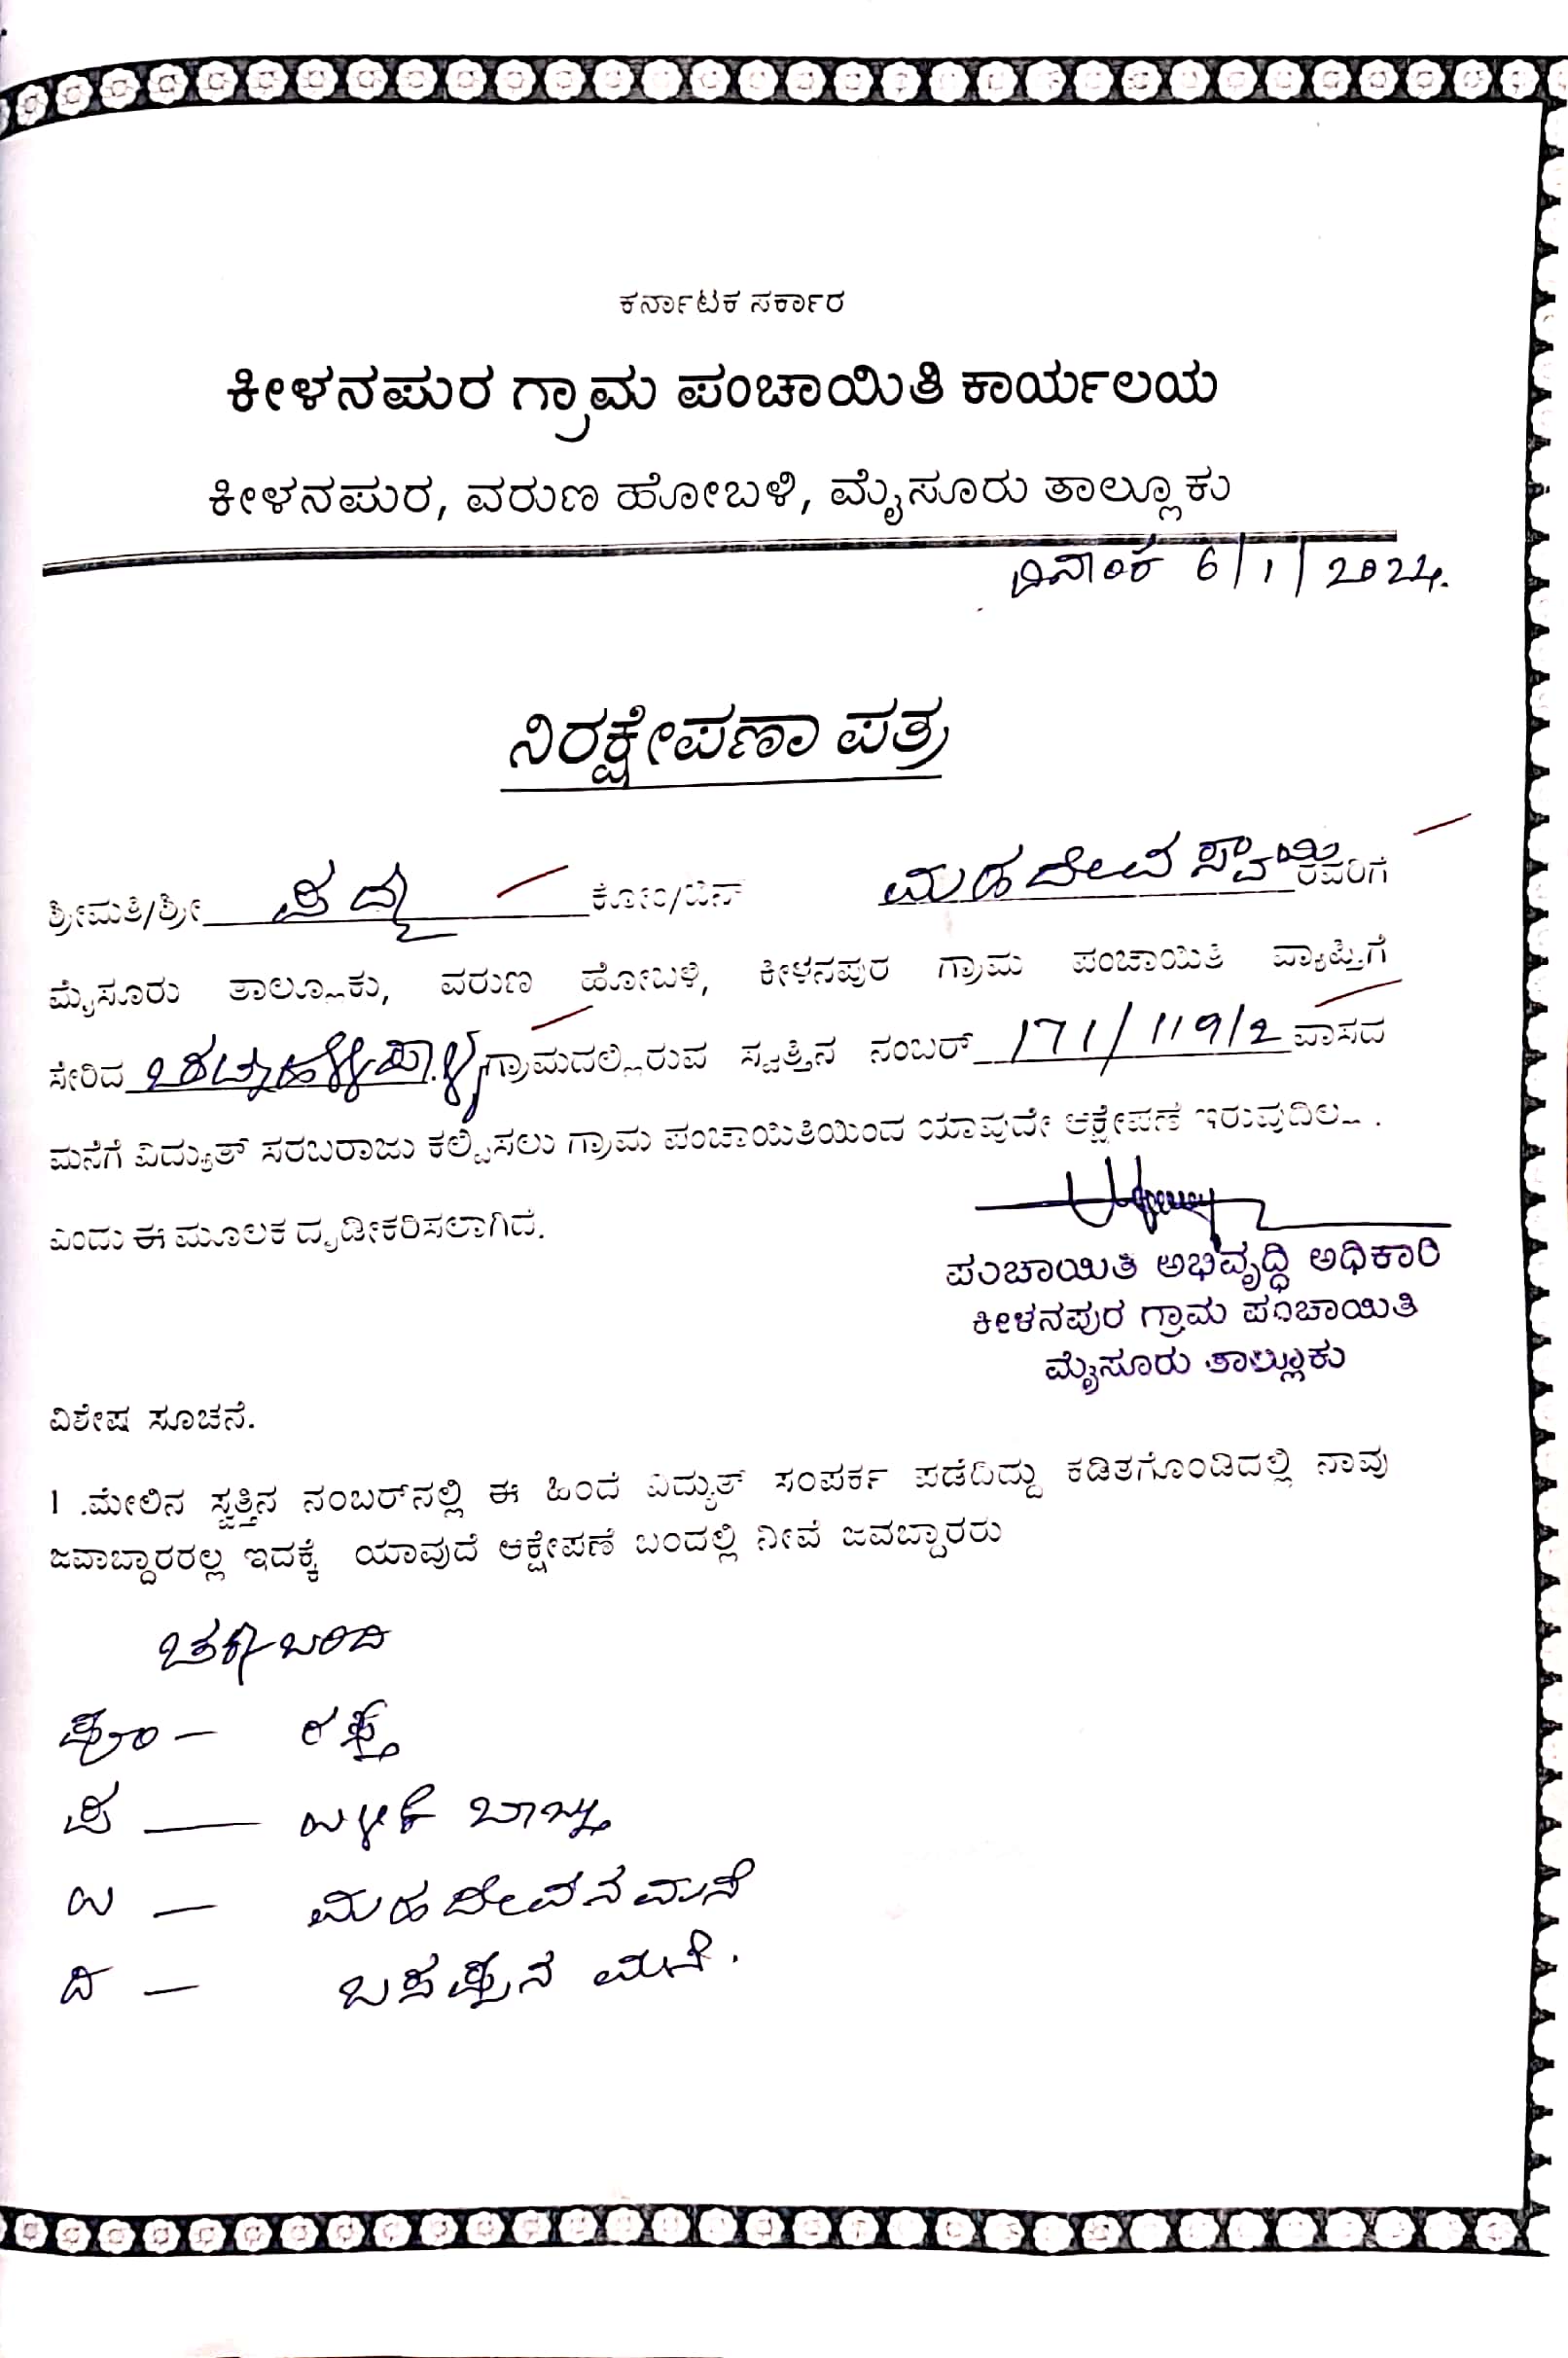 ಕರ್ನಾಟಕ ಸರ್ಕಾರ
ಕೀಳನಪುರ ಗ್ರಾಮ ಪಂಚಾಯಿತಿ ಕಾರ್ಯಲಯ
ಕೀಳನಪುರ, ವರುಣ ಹೋಬಳಿ, ಮೈಸೂರು ತಾಲ್ಲೂಕು
ದಿನಾಂಕ 6/1/2024.
ನಿರಕ್ಷೇಪಣಾ ಪತ್ರ
ಶ್ರೀಮತಿ/ಶ್ರೀ ಪದ್ಮ ಕೋಂ/ಬಿನ್ ಮಹದೇವಸ್ವಾಮಿ ರವರಿಗೆ
ಮೈಸೂರು ತಾಲ್ಲೂಕು, ವರುಣ ಹೋಬಳಿ, ಕೀಳನಪುರ ಗ್ರಾಮ ಪಂಚಾಯಿತಿ ವ್ಯಾಪ್ತಿಗೆ
ಸೇರಿದ ಗ್ರಾಮದಲ್ಲಿರುವ ಸ್ವತ್ತಿನ ನಂಬರ್ 171/119/2 ವಾಸದ
ಮನೆಗೆ ವಿದ್ಯುತ್ ಸರಬರಾಜು ಕಲ್ಪಿಸಲು ಗ್ರಾಮ ಪಂಚಾಯಿತಿಯಿಂದ ಯಾವುದೇ ಆಕ್ಷೇಪಣೆ ಇರುವುದಿಲ್ಲ .
ಎಂದು ಈ ಮೂಲಕ ದೃಡೀಕರಿಸಲಾಗಿದೆ.
ಪಂಚಾಯಿತಿ ಅಭಿವೃದ್ಧಿ ಅಧಿಕಾರಿ
ಕೀಳನಪುರ ಗ್ರಾಮ ಪಂಚಾಯಿತಿ
ಮೈಸೂರು ತಾಲ್ಲೂಕು
ವಿಶೇಷ ಸೂಚನೆ.
1 .ಮೇಲಿನ ಸ್ವತ್ತಿನ ನಂಬರ್‌ನಲ್ಲಿ ಈ ಹಿಂದೆ ವಿದ್ಯುತ್ ಸಂಪರ್ಕ ಪಡೆದಿದ್ದು ಕಡಿತಗೊಂಡಿದಲ್ಲಿ ನಾವು
ಜವಾಬ್ದಾರರಲ್ಲ ಇದಕ್ಕೆ ಯಾವುದೆ ಆಕ್ಷೇಪಣೆ ಬಂದಲ್ಲಿ ನೀವೆ ಜವಬ್ದಾರರು
ಚಕ್ಕುಬಂದಿ
ಪೂ — ರಸ್ತೆ
ಪ —
ಉ — ಮಹದೇವನ ಮನೆ
ದ — ಬಸಪ್ಪನ ಮನೆ.